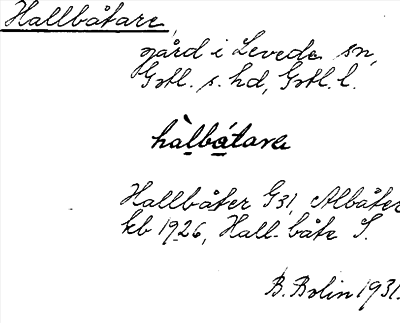 Hallbåtare,
gård i Levede sn,
Gotl. s. hd, Gotl. l.
hàlbátara
Hallbåter G31, Albåter
kb 1926, Hall-båte S.
B. Bolin 1931.